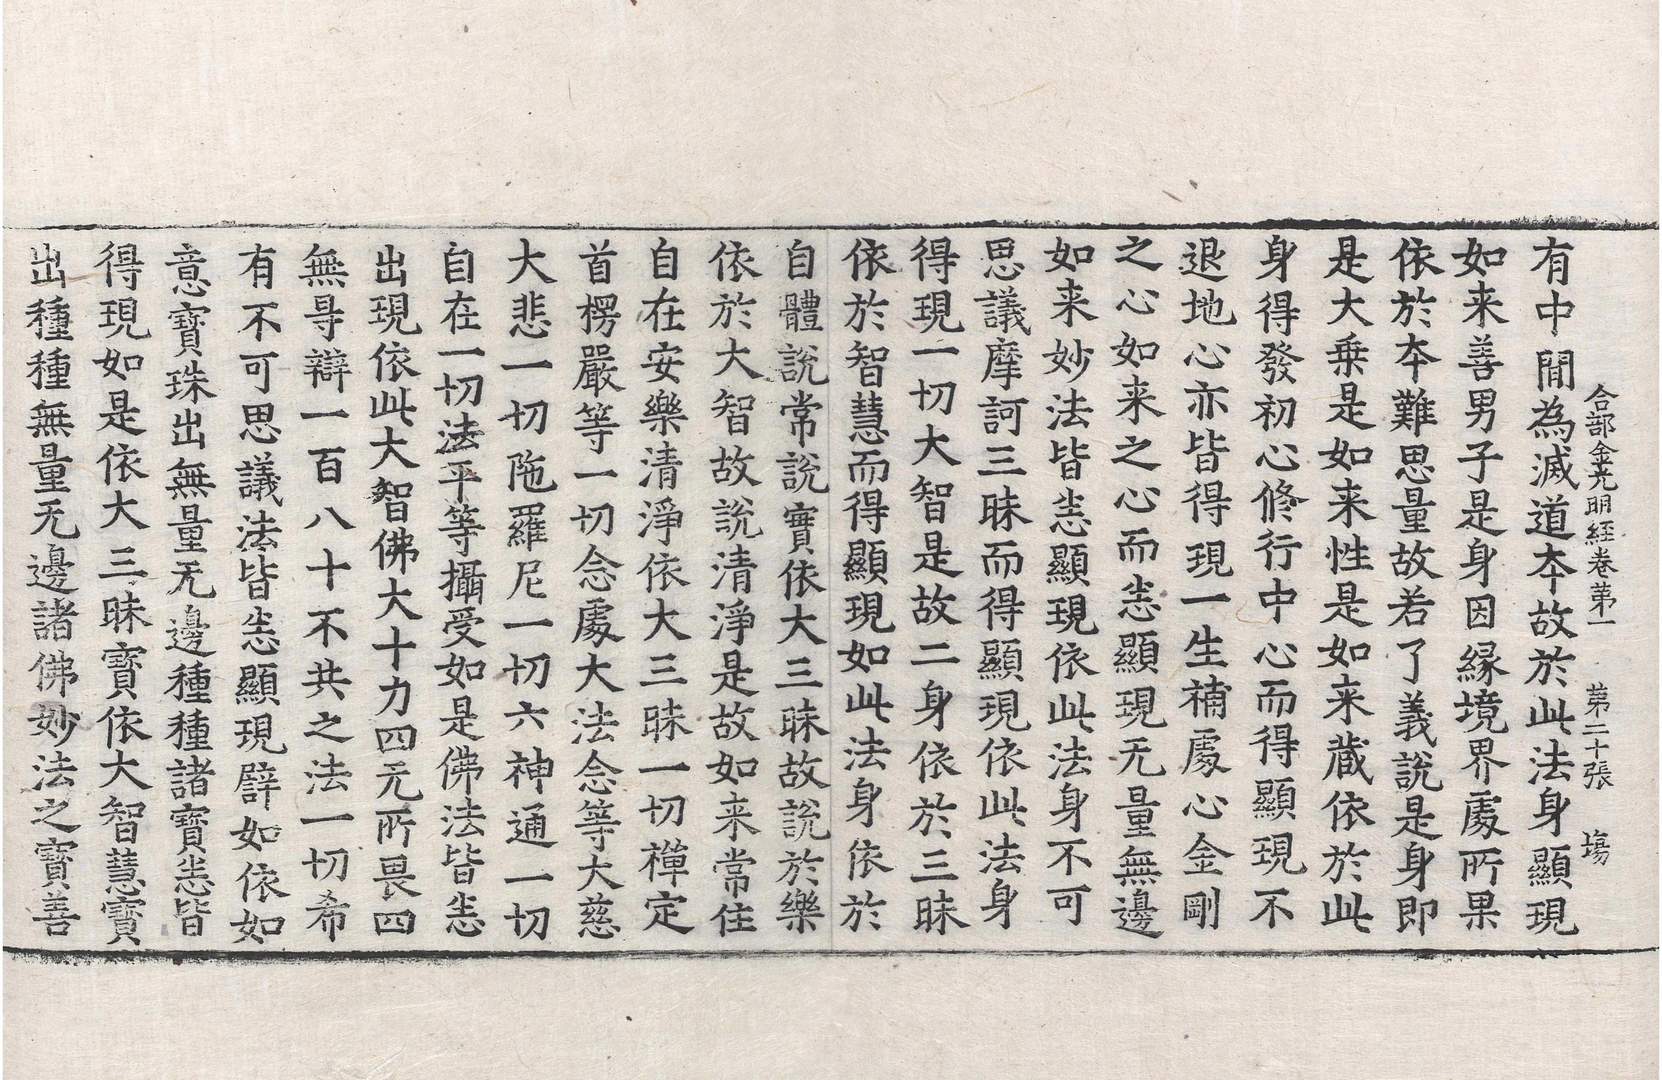 合部金光明經卷第一　第二十張　塲
有中間為滅道夲故於此法身顯現
如来善男子是身因緣境界處所果
依於夲難思量故若了義說是身即
是大乗是如来性是如来藏依於此
身得發初心修行中心而得顯現不
退地心亦皆得現一生補處心金剛
之心如来之心而悉顯現无量無邊
如来妙法皆悉顯現依此法身不可
思議摩訶三昧而得顯現依此法身
得現一切大智是故二身依於三昧
依於智慧而得顯現如此法身依於
自體說常說實依大三昧故說於樂
依於大智故說清淨是故如来常住
自在安樂清淨依大三昧一切禪定
首楞嚴等一切念處大法念等大慈
大悲一切陁羅尼一切六神通一切
自在一切法平等攝受如是佛法皆悉
出現依此大智佛大十力四无所畏四
無㝵辯一百八十不共之法一切希
有不可思議法皆悉顯現譬如依如
意寶珠出無量无邊種種諸寶悉皆
得現如是依大三昧寶依大智慧寶
出種種無量无邊諸佛妙法之寶善